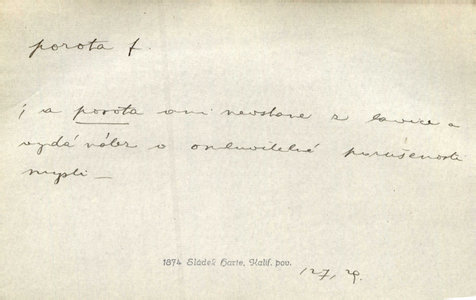 porota f.
; a porota ani nevstane z lavice a
vydá nález o omluvitelné porušenosti
mysli —
1874 Sládek Harte, Kalif. pov.
127, 29.